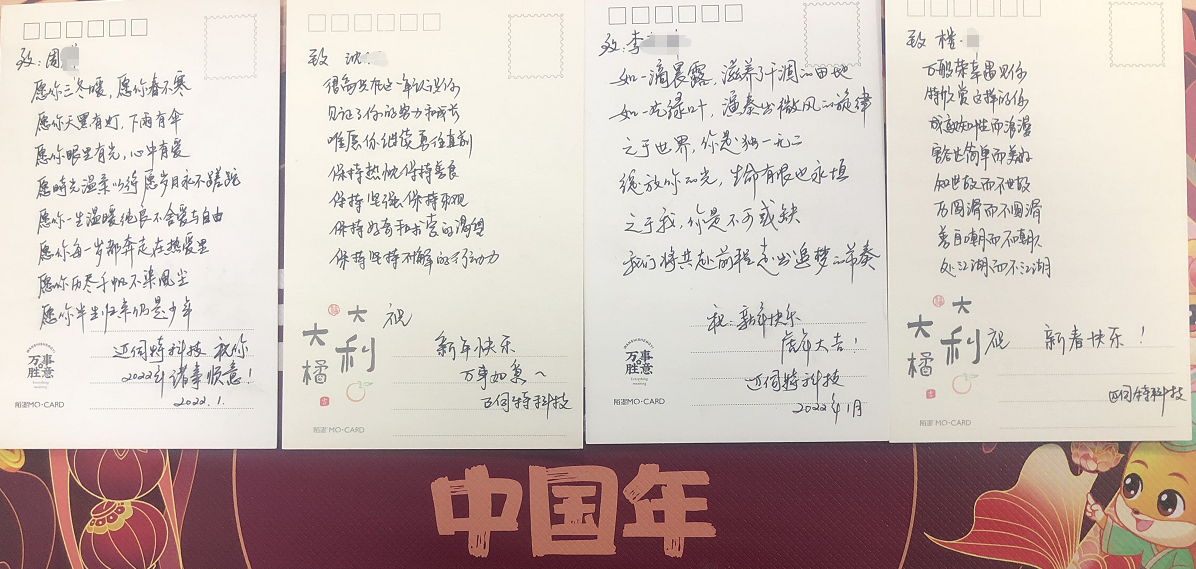 致:周
愿你三冬暖，愿你春不寒
愿你天黑有灯，下雨有伞
愿你眼里有光，心中有爱
愿时光温柔以待 愿岁月永不蹉跎
愿你一生温暖纯良不舍爱与自由
愿你每一岁都奔走在热爱里
愿你历尽千帆不染风尘
愿你半生归来仍是少年
迈伺特科技 祝你
2022年诸事顺意!
2022.1.
万事
胜意
Everything
meaning
陌墨MO·CARD
致 沈
很高兴在这一年认识你
见证了你的努力和成长
唯愿你继续勇往直前
保持热忱 保持善良
保持坚强 保持乐观
保持好奇和求索的渴望
保持坚持不懈的行动力
大橘
大利
祝
新年快乐
万事如意~
迈伺特科技
陌墨MO·CARD
致:李
如一滴晨露，滋养了干涸的田地
如一片绿叶，演奏出微风的旋律
之于世界，你是独一无二
绽放你的光，生命有限也永恒
之于我，你是不可或缺
我们将共赴前程走出追梦的节奏
祝:新年快乐
虎年大吉!
迈伺特科技
2022年1月
万事
胜意
Everything
meaning
陌墨MO·CARD
致 楷·
万般荣幸遇见你
特欣赏这样的你
成熟知性而浪漫
豁达简单而美好
知世故而不世故
历圆滑而不圆滑
善自嘲而不嘲人
处江湖而不江湖
大橘
大利
祝 新春快乐!
迈伺特科技
陌墨MO·CARD
中国年